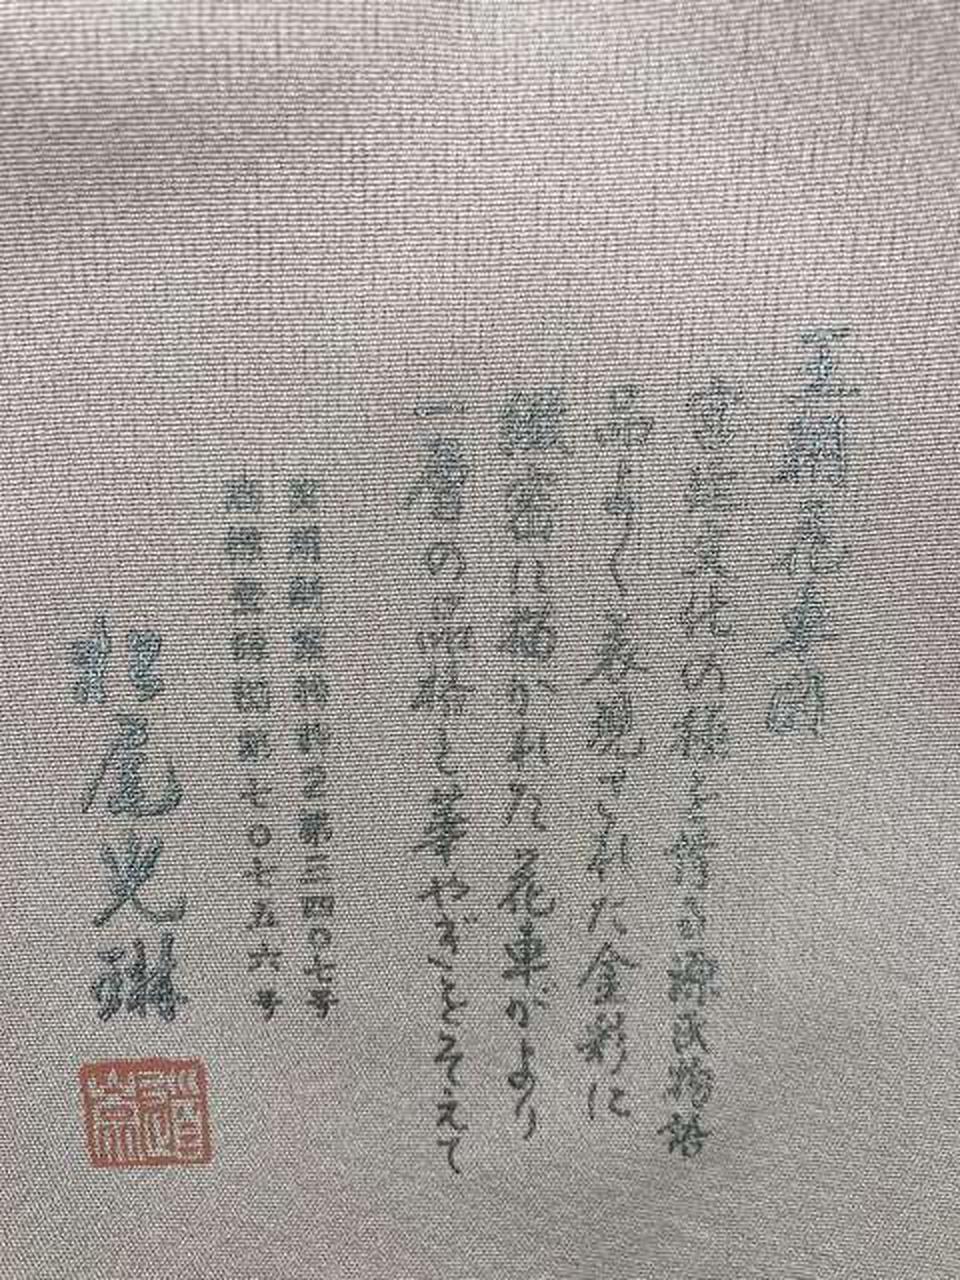 王朝花車図
宮廷文化の極を誇る源氏物語
品よく表現された金彩に
繊密に描かれた花車がより
一層の品格と華やぎをそえて
第三四〇七号
意匠登録第七〇七五六号
松尾光琳